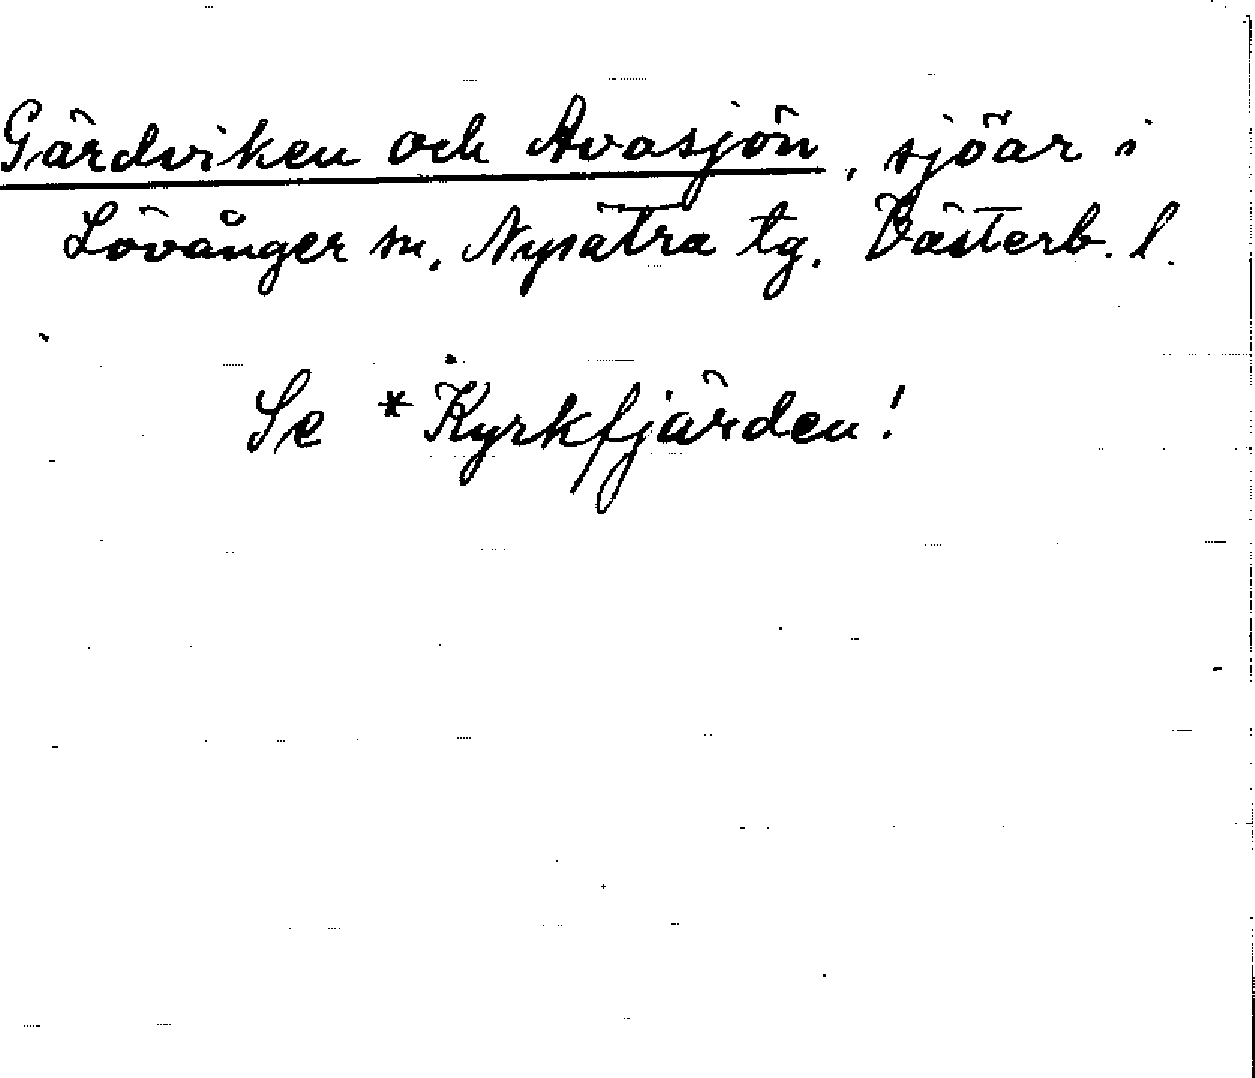 Gärdviken och Avasjön, sjöar i
Lövånger sn, Nysätra tg. Västerb. l.
Se *Kyrkfjärden!